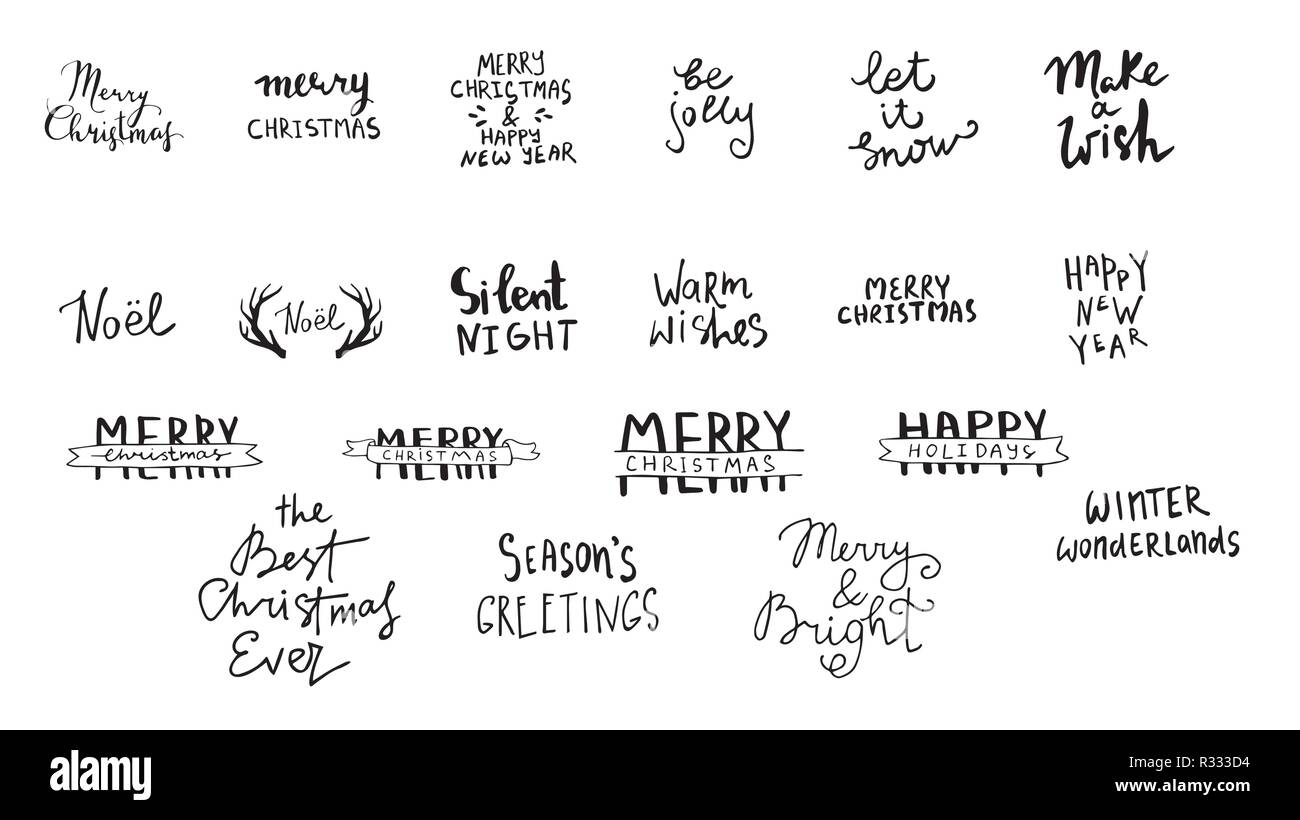 Merry
Christmas
merry
CHRISTMAS
MERRY
CHRISTMAS
&
HAPPY
NEW YEAR
be
jolly
let
it
snow
Make
a
Wish
Noël
Noël
Silent
NIGHT
Warm
Wishes
MERRY
CHRISTMAS
HAPPY
NEW
YEAR
MERRY
christmas
MERRY
CHRISTMAS
MERRY
CHRISTMAS
HAPPY
HOLIDAYS
the
Best
Christmas
Ever
SEASON'S
GREETINGS
Merry
&
Bright
WINTER
WONDERLANDS
alamy stock photo
R333D4
www.alamy.com